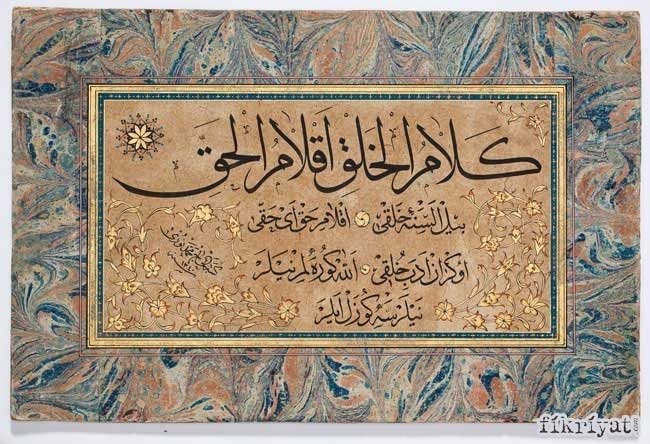 كلام الخلق اقلام الحق
بيل السنهٔ خلقى اقلام حق اى حقى
اوكرن ادب خلقى الله كوره لم نيلر
نيلرسه كوزل ايلر
fikriyat